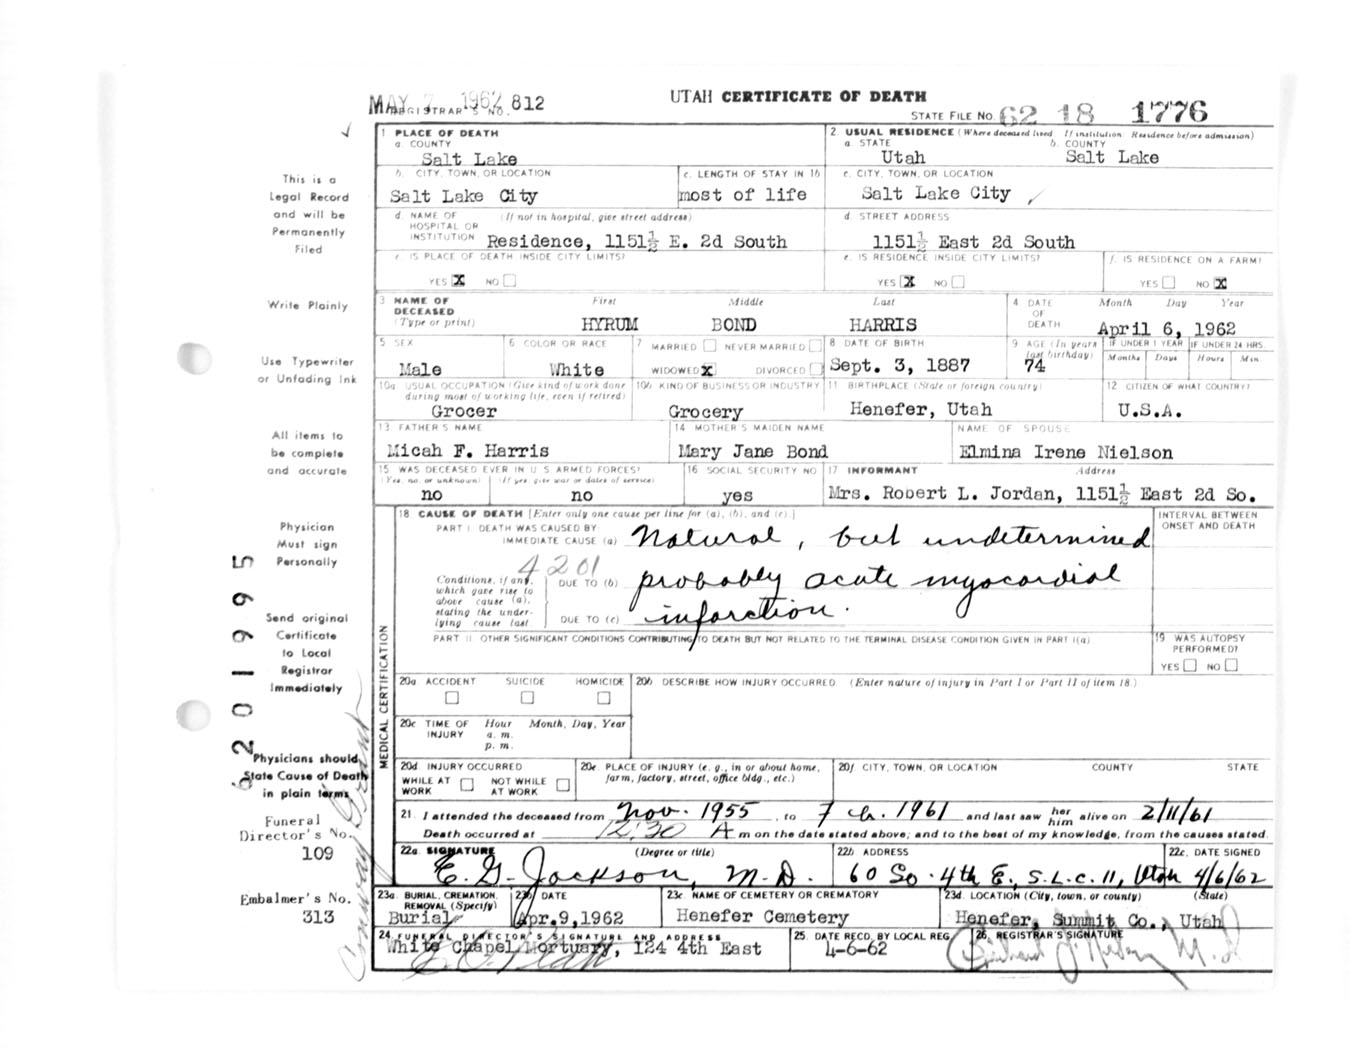 MAY 7 1962 812
REGISTRAR'S NO.
UTAH CERTIFICATE OF DEATH
STATE FILE No. 62 18 1776
This is a
Legal Record
and will be
Permanently
Filed
Write Plainly
Use Typewriter
or Unfading Ink
All items to
be complete
and accurate
Physician
Must sign
Personally
Send original
Certificate
to Local
Registrar
Immediately
Physicians should
State Cause of Death
in plain terms
Funeral
Director's No.
109
Embalmer's No.
313
6201995
1 PLACE OF DEATH
a. COUNTY
Salt Lake
2. USUAL RESIDENCE (Where deceased lived If institution: Residence before admission)
a. STATE b. COUNTY
Utah Salt Lake
b. CITY, TOWN, OR LOCATION
Salt Lake City
c. LENGTH OF STAY IN 1b
most of life
c. CITY, TOWN, OR LOCATION
Salt Lake City
d. NAME OF (If not in hospital, give street address)
HOSPITAL OR
INSTITUTION Residence, 1151½ E. 2d South
d. STREET ADDRESS
1151½ East 2d South
e. IS PLACE OF DEATH INSIDE CITY LIMITS?
YES X NO
e. IS RESIDENCE INSIDE CITY LIMITS?
YES X NO
f. IS RESIDENCE ON A FARM?
YES NO X
3 NAME OF First Middle Last
DECEASED
(Type or print) HYRUM BOND HARRIS
4 DATE Month Day Year
OF
DEATH April 6, 1962
5 SEX
Male
6 COLOR OR RACE
White
7 MARRIED NEVER MARRIED
WIDOWED X DIVORCED
8 DATE OF BIRTH
Sept. 3, 1887
9 AGE (In years IF UNDER 1 YEAR IF UNDER 24 HRS.
last birthday) Months Days Hours Min.
74
10a USUAL OCCUPATION (Give kind of work done
during most of working life, even if retired)
Grocer
10b KIND OF BUSINESS OR INDUSTRY
Grocery
11 BIRTHPLACE (State or foreign country)
Henefer, Utah
12 CITIZEN OF WHAT COUNTRY?
U.S.A.
13 FATHER'S NAME
Micah F. Harris
14 MOTHER'S MAIDEN NAME
Mary Jane Bond
NAME OF SPOUSE
Elmina Irene Nielson
15 WAS DECEASED EVER IN U S ARMED FORCES?
(Yes, no, or unknown) (If yes, give war or dates of service)
no no
16 SOCIAL SECURITY NO
yes
17 INFORMANT Address
Mrs. Robert L. Jordan, 1151½ East 2d So.
MEDICAL CERTIFICATION
18 CAUSE OF DEATH [Enter only one cause per line for (a), (b), and (c).]
INTERVAL BETWEEN
ONSET AND DEATH
PART I DEATH WAS CAUSED BY:
IMMEDIATE CAUSE (a) Natural, but undetermined
4201
Conditions, if any,
which gave rise to
above cause (a),
stating the under-
lying cause last
DUE TO (b) probably acute myocardial
DUE TO (c) infarction.
PART II OTHER SIGNIFICANT CONDITIONS CONTRIBUTING TO DEATH BUT NOT RELATED TO THE TERMINAL DISEASE CONDITION GIVEN IN PART I(a)
19 WAS AUTOPSY
PERFORMED?
YES NO
20a ACCIDENT SUICIDE HOMICIDE
20b DESCRIBE HOW INJURY OCCURRED (Enter nature of injury in Part I or Part II of item 18.)
20c TIME OF Hour Month, Day, Year
INJURY a. m.
p. m.
20d INJURY OCCURRED
WHILE AT NOT WHILE
WORK AT WORK
20e. PLACE OF INJURY (e. g., in or about home,
farm, factory, street, office bldg., etc.)
20f CITY, TOWN, OR LOCATION COUNTY STATE
21. I attended the deceased from Nov. 1955, to Feb. 1961 and last saw her him alive on 2/11/61
Death occurred at 12:30 A m on the date stated above; and to the best of my knowledge, from the causes stated.
22a SIGNATURE (Degree or title)
E. G. Jackson, M.D.
22b ADDRESS
60 So. 4th E., S.L.C. 11, Utah
22c. DATE SIGNED
4/6/62
23a BURIAL, CREMATION,
REMOVAL (Specify)
Burial
23b DATE
Apr.9,1962
23c NAME OF CEMETERY OR CREMATORY
Henefer Cemetery
23d LOCATION (City, town, or county) (State)
Henefer, Summit Co., Utah
24 FUNERAL DIRECTOR'S SIGNATURE AND ADDRESS
White Chapel Mortuary, 124 4th East
25. DATE RECD. BY LOCAL REG.
4-6-62
26. REGISTRAR'S SIGNATURE